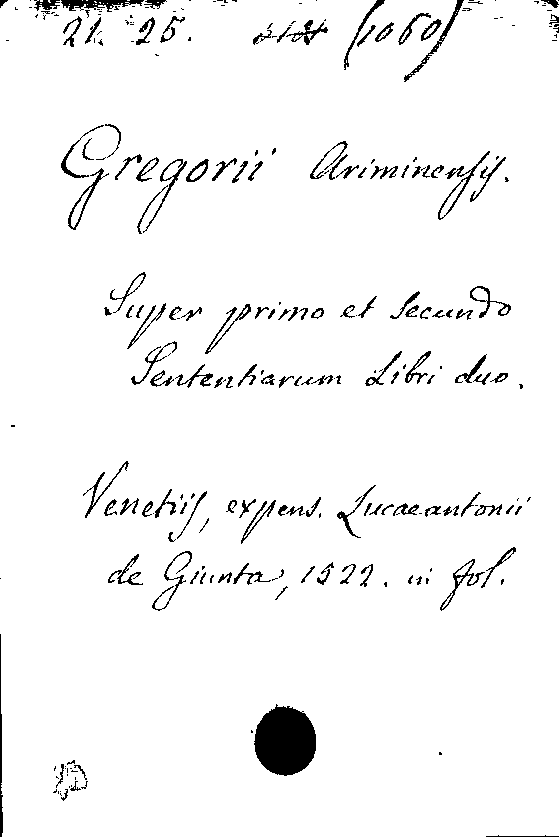 21. 25. (1060)
Gregorii Ariminensis.
Super primo et secundo
Sententiarum Libri duo.
Venetiis, expens. Lucaeantonii
de Giunta, 1522. in fol.